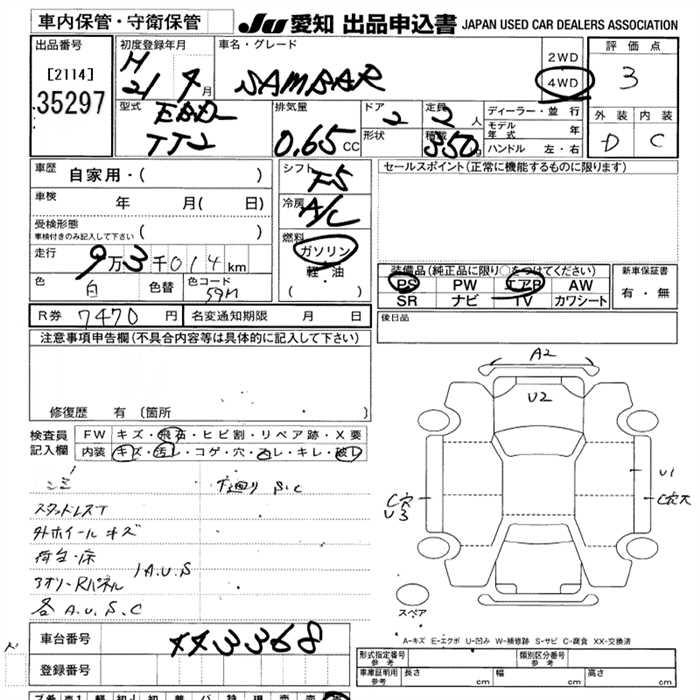 車内保管・守衛保管
JU 愛知 出品申込書 JAPAN USED CAR DEALERS ASSOCIATION
出品番号
[2114]
35297
初度登録年月
H
21 4月
車名・グレード
SAMBAR
2WD
4WD
評価点
3
外装 内装
D C
型式
EBD-
TT2
排気量
0.65 CC
ドア 2
形状
定員 2 人
積載 350
ディーラー・並行
モデル年式 年
ハンドル 左・右
車歴
自家用・( )
車検 年 月( 日)
受検形態
車検付きのみ記入して下さい ( )
走行 9万3千014km
色 白 色替 色コード 59M
シフト F5
冷房 A/C
燃料
ガソリン
軽・油
( ・ )
セールスポイント(正常に機能するものに限ります)
装備品(純正品に限り○をつけてください)
PS PW エアB AW
SR ナビ TV カワシート
新車保証書
有・無
後日品
R券 7470 円 名変通知期限 月 日
注意事項申告欄(不具合内容等は具体的に記入して下さい)
修復歴 有 〔箇所 〕
検査員
記入欄
FW キズ・飛石・ヒビ割・リペア跡・X要
内装 キズ・汚レ・コゲ・穴・ヌレ・キレ・破レ
下廻り S.C
スタッドレスT
外ホイールキズ
荷台・床
3オリ-Rパネル
A.U.S
各A.U.S.C
A2
U2
U1
C穴
U3
C穴大
スペア
A-キズ E-エクボ U-凹み W-補修跡 S-サビ C-腐食 XX-交換済
車台番号 443368
登録番号
形式指定番号
参考
類別区分番号
参考
車庫証明用
参考
長さ cm 幅 cm 高さ cm